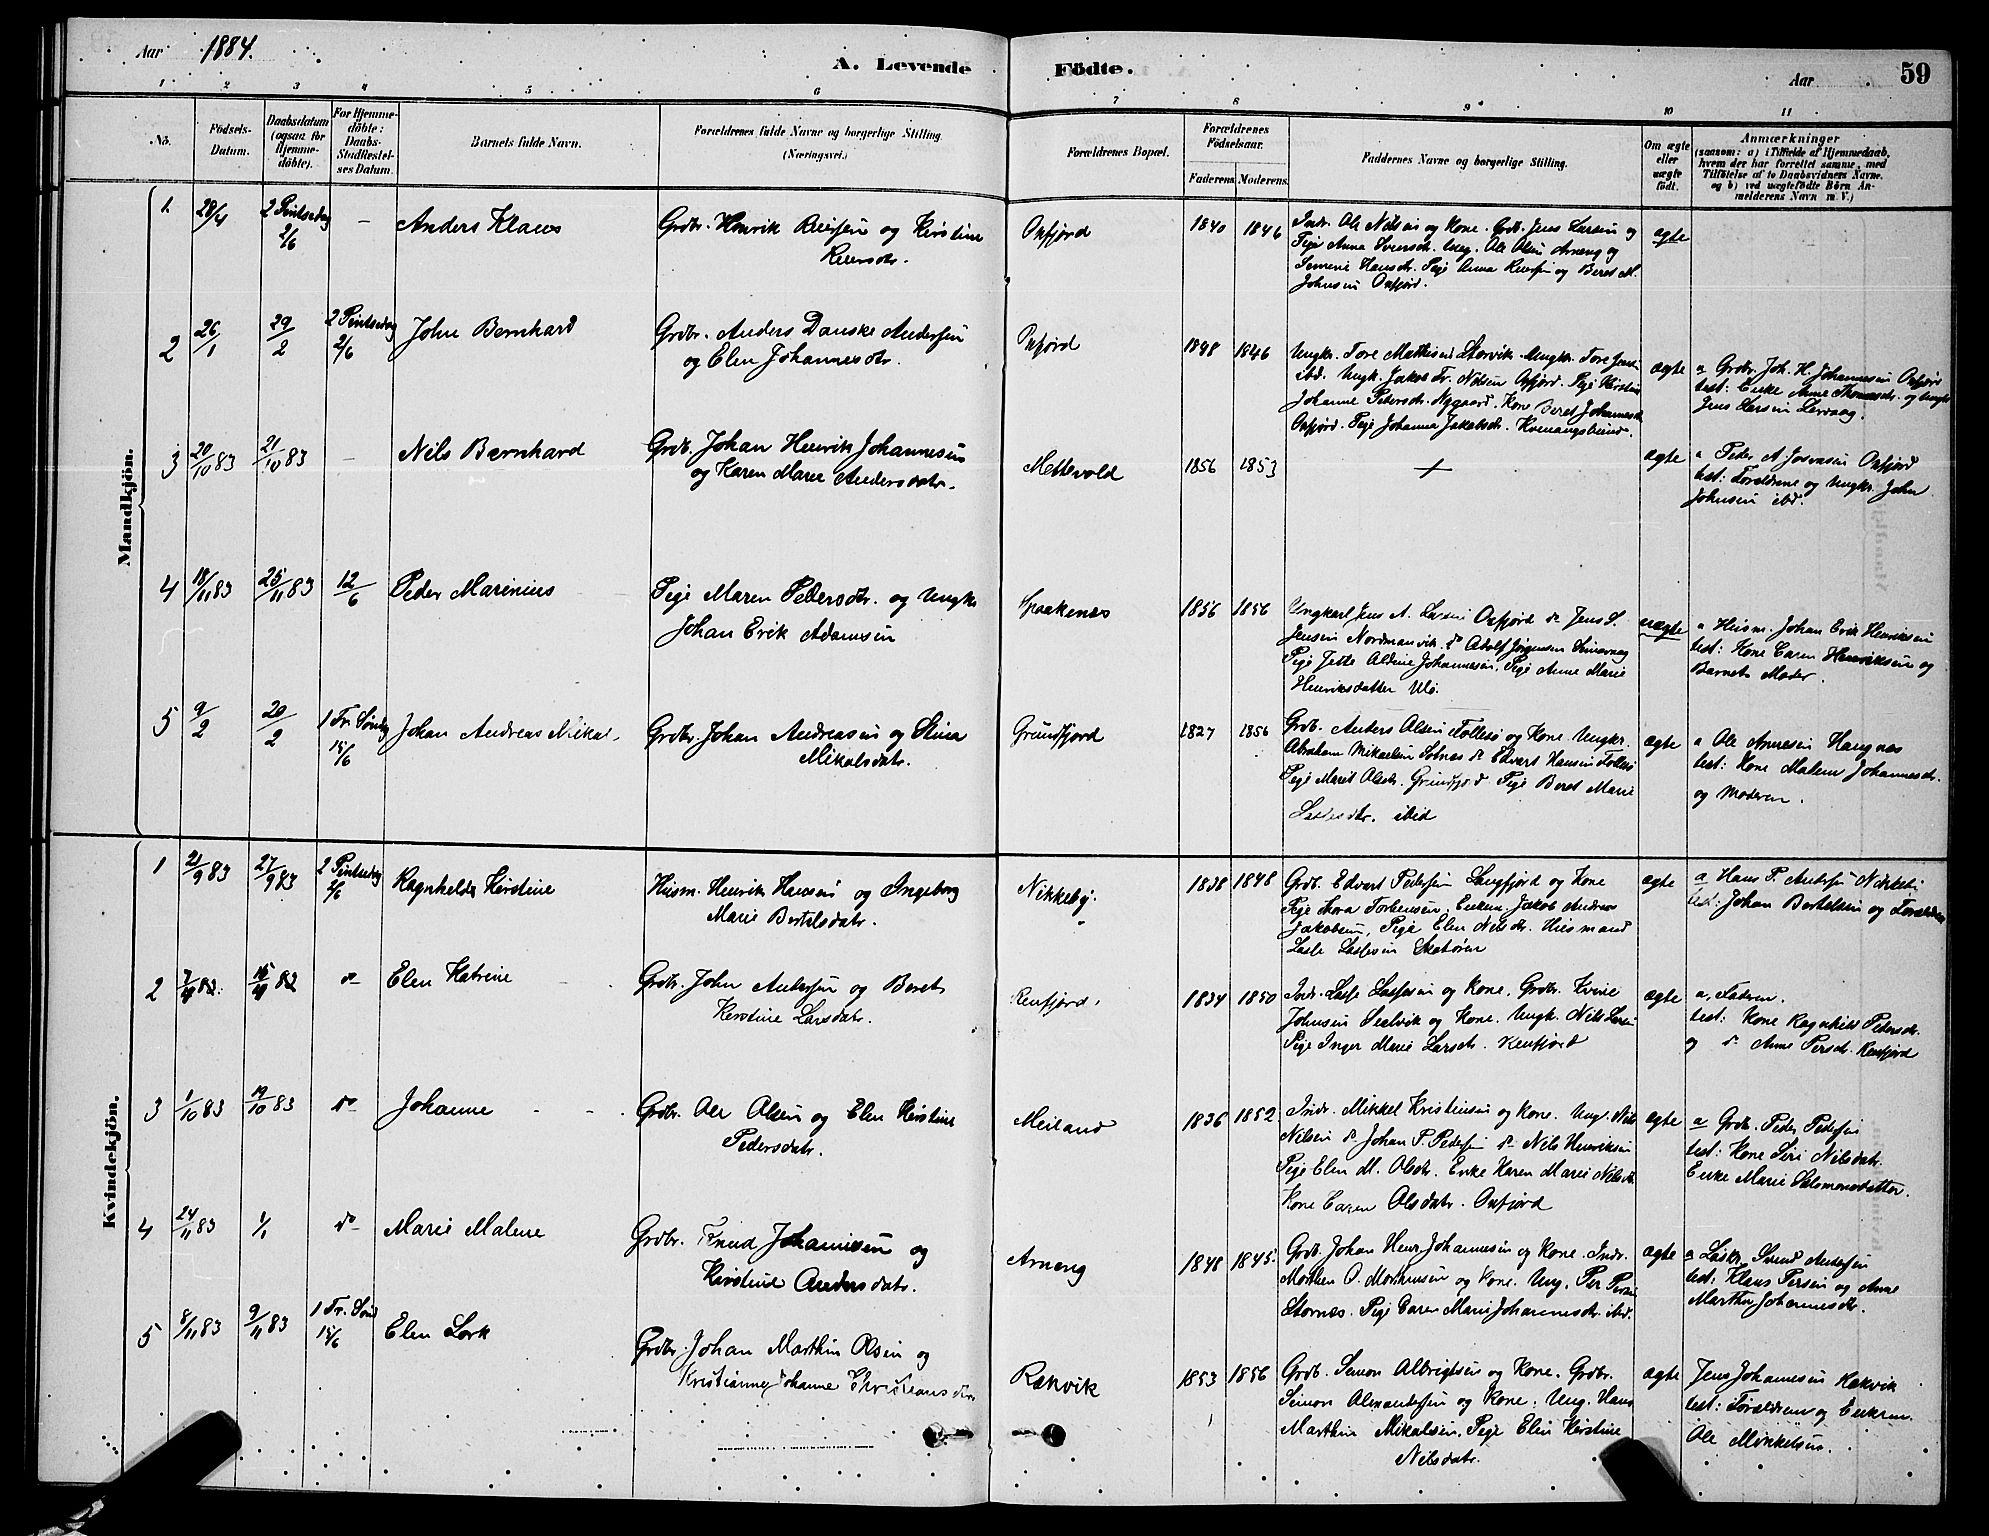 Aar 1884.
A. Levende Födte.
Aar
59
1 2 3 4 5 6 7 8 9 10 11
No.
Födsels-Datum.
Daabsdatum (ogsaa for Hjemme-döbte).
For Hjemme-döbte: Daabs-Stadfæstel-ses Datum.
Barnets fulde Navn.
Forældrenes fulde Navne og borgerlige Stilling. (Næringsvei.)
Forældrenes Bopæl.
Forældrenes Födselsaar.
Faderens. Moderens.
Faddernes Navne og borgerlige Stilling.
Om ægte eller uægte födt.
Anmærkninger
(saasom: a) i Tilfælde af Hjemmedaab, hvem der har forrettet samme, med Tilföielse af to Daabsvidners Navne. og b) ved uægtefödte Börn An-melderens Navn m. V.)
Mandkjön.
1. 28/4 2 Pintsedag 2/6 – Anders Klaus
Grdbr. Henrik Reiersen og Kirstine
Reiersdtr.
Oxfjord 1840 1846
Indr. Ole Nilsen og Kone. Grdb. Jens Larsen og
Pige Anna Svensdtr. Ung. Ole Olsen Arnæng og
Hansdtr. Pige Anna og Beret M.
Johnsen Oxfjord.
ægte
2 26/1 29/2 2 Pintsedag 2/6 John Bernhard
Grdbr. Anders Danske Andersen
og Elen Johannesdtr.
Oxfjord 1848 1846
Ungkr. Tore Mathisen Storvik. Ungkr. Tore Jensen
ibd. Ungk. Jakob Fr. Nilsen Oxfjord. Pige Kirstine
Johanne Pedersdtr. Nygaard. Kone Beret Johannesdtr.
Oxfjord. Pige Johanna Jakobsdr. Kvænangsbund.
ægte
a Grdbr. Joh. H. Johannesen Oxfjord
test: Enke Anne Thomasdr. og Ungkr
Jens Larsen Lervaag.
3 20/10 83 21/10 83 – Nils Bernhard
Grdb. Johan Henrik Johannesen
og Karen Marie Andersdatr.
Mettevold 1856 1853
+
ægte
a Peder A. Josvasen Oxfjord
test: Forældrene og Ungkr. John
Johnsen ibd.
4 18/11 83 25/11 83 12/6 Peder Marinius
Pige Maren Pedersdtr. og Ungkr
Johan Erik Adamsen
Spaakenæs 1856 1856
Ungkarl Jens A. Larsen Oxfjord do Jens S.
Jensen Nordmanvik. do Adolf Jörgensen
Pige Jette Aldine Johannesen, Pige Anne Marie
Henriksdatter Ulö.
uægte
a Husm. Johan Erik Henriksen
test: Kone Caren Henriksen og
Barnets Moder.
5 9/2 20/2 1 Tr. Søndag 15/6 Johan Andreas Mikal
Grdbr. Johan Andreasen og Stina
Mikalsdatr.
Grundfjord 1827 1856
Grdb. Anders Olsen Follesö og Kone. Ungkr.
Abraham Mikaelsen Sotnæs do Edvart Hansen Follesö
Pige Marit Olsdtr. Grundfjord Pige Beret Marie
Lassesdtr. ibid
ægte
a Ole Hansnæs
test: Kone Malene Johannesdr.
og Moderen.
Kvindekjön.
1 21/9 83 27/9 83 2 Pintsedag 2/6 Ragnhelda Kirstine
Husm. Henrik Hansen og Ingeborg
Marie Bertelsdatr.
Nikkeby. 1838 1848
Grdb. Edvart Pedersen Langfjord og Kone
Pige Torbensen, Enkem. Jakob Andreas
Jakobsen, Pige Elen Nilsdr. Husmand
Lasse Lassesen Skatören
ægte
a Hans P. Andersen Nikkeby
test: Johan Bertelsen og Forældrene
2 7/4 82. 15/4 82 do Elen Katrine
Grdbr. John Andersen og Beret
Kirstine Larsdatr.
Reinfjord. 1834 1850
Indr. Lasse Lassesen og Kone. Grdbr.
Johnsen Sealvik og Kone. Ungk. Nils Larsen
Pige Inger Marie Larsdr. Reinfjord
ægte
a, Faderen.
test: Kone Ragnhild Pedersdr.
og do Anne Persdr. Reinfjord
3 1/10 83 19/10 83 do Johanne
Grdbr. Ole Olsen og Elen Kirstine
Pedersdatr.
Meiland 1836 1852
Indr. Mikkel Kristensen og Kone. Ung. Nils
Nilsen do Johan P. Pedersen do Nils Henriksen
Pige Elen M. Olsdr. Enke Karen Marie Nilsdr.
Kone Caren Olsdatr. Oxfjord
ægte
a Grdb. Peder Pedersen
test: Kone Siri Nilsdatr.
Enke Marie Salomonsdatter.
4 24/11 83 1/1 do Marie Malene
Grdbr. Knud Johannesen og
Kirstine Andersdatr.
Arnæng 1848 1845.
Grdb. Johan Henr. Johannesen og Kone. Indr.
Morthen O. Morthensen og Kone. Ung. Per Persen
Stornæs. Pige Caren Marie Johannesdr. ibd.
ægte
a Svend Andersen
test: Klaus Persen og Anne
Martha Johannesdr.
5 8/11 83 9/11 83 1 Tr. Sönd 15/6 Elen Lork
Grdbr. Johan Marthin Olsen og
Kristianna Johanne Christiansdtr.
Rakvik 1853 1856
Grdb. Simon Albrigtsen og Kone. Grdbr.
Simon Alexandersen og Kone. Ung. Hans
Marthin Mikalsen. Pige Elen Kirstine
Nilsdatr.
ægte
Jens Johannesen Rakvik
test: Forældrene og Enkem.
Ole Mikkelsen.